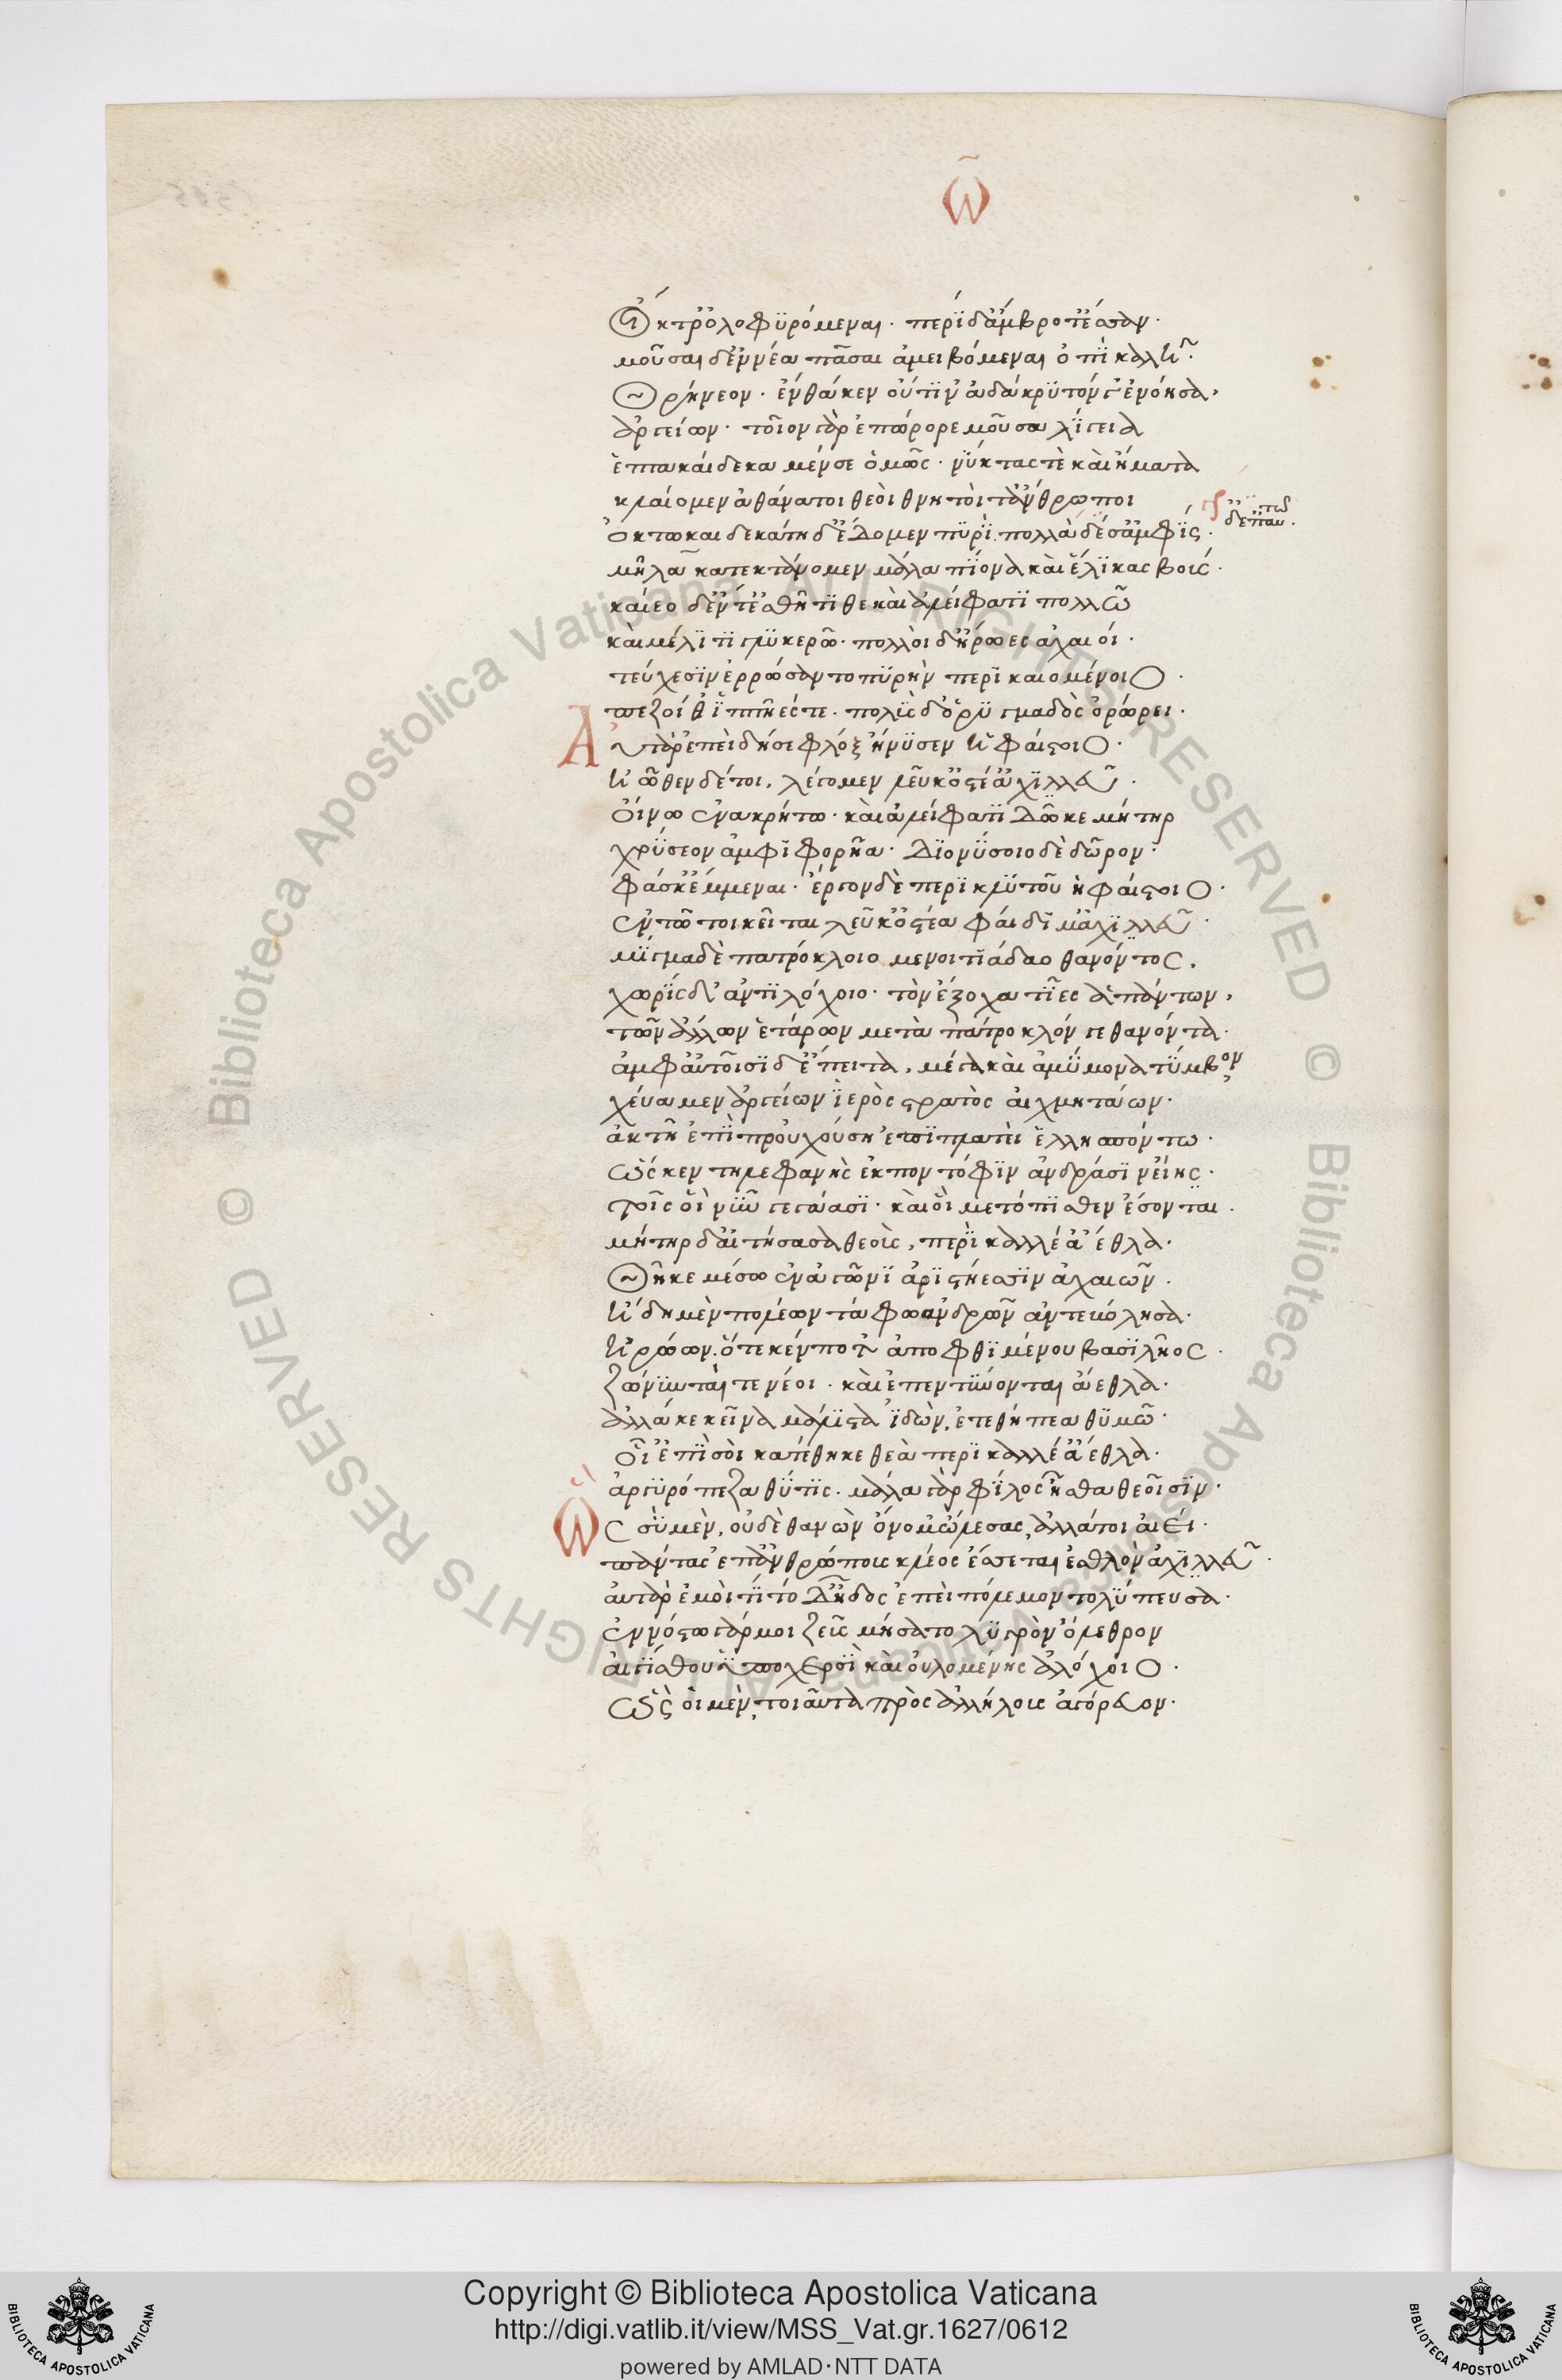 ω̃
Οἴκτρ' ὀλοφυρόμεναι· περὶ δ' ἄμβροτ' ἕεσαν·
μοῦσαι δ' ἐννέα πᾶσαι ἀμειβόμεναι ὀπὶ καλῆ·
Θρήνεον· ἔνθά κεν οὔτιν' ἀδάκρυτόν γ' ἐνόησας
ἀργείων· τοῖον γὰρ ἐπώρορε μοῦσα λίγεια
ἑπτακαίδεκα μέν σε ὁμῶς· νύκτάς τὲ καὶ ἤματα
κλαίομεν ἀθάνατοι θεοὶ θνητοί τ' ἄνθρωποι
ὀκτωκαιδεκάτη δ' ἔδομεν πυρὶ· πολλὰ δέ σ' ἀμφὶς·
μῆλα κατεκτάνομεν μάλα πίονα καὶ ἕλικας βοῦς·
καίεο δ' ἔν τ' ἐσθῆτι θε καὶ ἀλείφατι πολλῶ
καὶ μέλιτι γλυκερῶ· πολλοὶ δ' ἥρωες ἀχαιοί·
τεύχεσιν ἐρρώσαντο πυρὴν περὶ καιομένοιο·
πεζοί θ' ἱππῆές τε· πολὺς δ' ὀρυμαγδὸς ὀρώρει·
Αὐτὰρ ἐπεὶ δή σε φλὸξ ἤνυσεν ἡφαίστοιο·
ἠῶθεν δέ τοι, λέγομεν λεῦκ' ὀστέ' ἀχιλλεῦ·
οἴνω ἐν ἀκρήτω· καὶ ἀλείφατι δῶκε μήτηρ
χρύσεον ἀμφιφορῆα· διονύσοιο δὲ δῶρον·
φάσκ' ἔμμεναι· ἔργον δὲ περικλυτοῦ ἡφαίστοιο·
ἐν τῶ τοι κεῖται λεῦκ' ὀστέα φαίδιμ' ἀχιλλεῦ·
μίγμα δὲ πατρόκλοιο μενοιτιάδαο θανόντος,
χωρὶς δ' ἀντιλόχοιο· τὸν ἔξοχα τῖες ἁπάντων,
τῶν ἄλλων ἑτάρων μετὰ πάτροκλόν γε θανόντα·
ἀμφ' αὐτοῖσι δ' ἔπειτα, μέγα καὶ ἀμύμονα τύμβον
χεύαμεν ἀργείων ἱερὸς στρατὸς αἰχμητάων·
ἀκτῆ ἐπὶ προυχούση ἐπὶ πλατεῖ ἑλλησπόντω·
ὥς κεν τηλεφανὴς ἐκ ποντόφιν ἀνδράσιν εἴης·
τοῖς οἳ νῦν γεγάασι· καὶ οἳ μετόπισθεν ἔσονται·
μήτηρ δ' αἰτήσασα θεοὺς, περικαλλέ' ἄεθλα·
Θῆκε μέσω ἐν ἀγῶνι ἀριστήεσσιν ἀχαιῶν·
ἤδη μὲν πολέων τάφω ἀνδρῶν ἀντεβόλησα·
ἡρώων, ὅτε κέν ποτ' ἀποφθιμένου βασιλῆος·
ζώνυνταί τε νέοι· καὶ ἐπεντύνονται ἄεθλα·
ἀλλά κε κεῖνα μάλιστα ἰδὼν, ἐτεθήπεα θυμῶ·
Οἷ' ἐπὶ σοὶ κατέθηκε θεὰ περικαλλέ' ἄεθλα·
ἀργυρόπεζα θέτις· μάλα γὰρ φίλος ἦσθα θεοῖσιν·
Ὣς σὺ μὲν, οὐδὲ θανὼν ὄνομ' ὤλεσας, ἀλλά τοι αἰεί·
πάντας ἐπ' ἀνθρώπους κλέος ἔσσεται ἐσθλὸν ἀχιλλεῦ·
αὐτὰρ ἐμοὶ τί τό δ' ἦδος ἐπεὶ πόλεμον τολύπευσα·
ἐν νόστω γάρ μοι ζεὺς μήσατο λυγρὸν ὄλεθρον
αἰγίσθου ὑπὸ χερσὶ καὶ οὐλομένης ἀλόχοιο·
ὣς οἱ μὲν, τοιαῦτα πρὸς ἀλλήλους ἀγόρευον·
Copyright © Biblioteca Apostolica Vaticana
http://digi.vatlib.it/view/MSS_Vat.gr.1627/0612
powered by AMLAD·NTT DATA